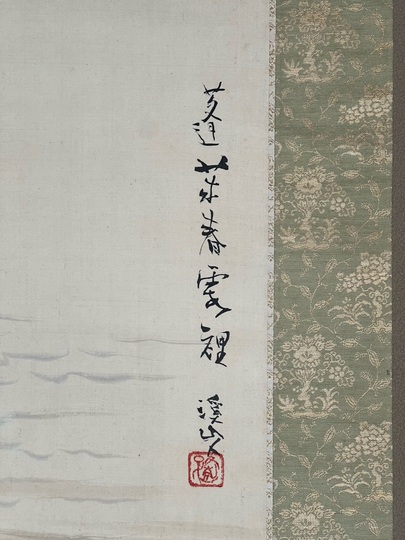 蓬莱春霞裡 溪山